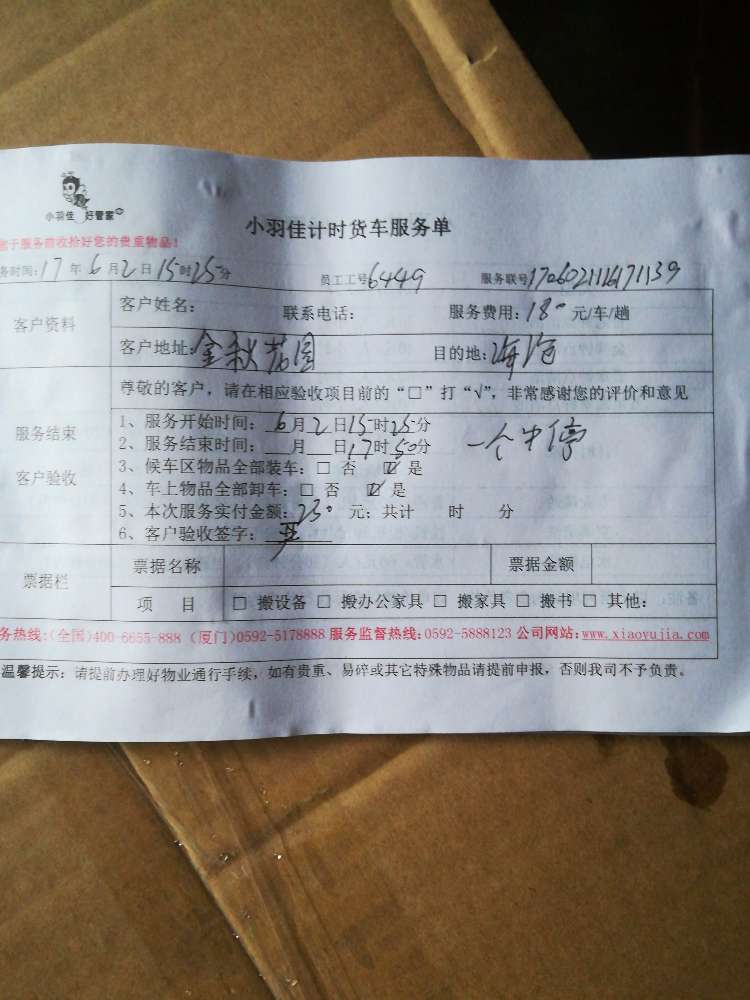 小羽佳 好管家
小羽佳计时货车服务单
于服务前收拾好您的贵重物品！
务时间：17年6月2日15时25分 员工工号6449 服务联号1706021116171139
客户资料
客户姓名： 联系电话： 服务费用：180元/车/趟
客户地址：金秋花园 目的地：海沧
尊敬的客户，请在相应验收项目前的“□”打“√”，非常感谢您的评价和意见
服务结束
客户验收
1、服务开始时间：6月2日15时25分
2、服务结束时间：__月__日17时50分 一个中停
3、候车区物品全部装车：□ 否 ☑ 是
4、车上物品全部卸车：□ 否 ☑ 是
5、本次服务实付金额：230元；共计 时 分
6、客户验收签字：
票据栏
票据名称 票据金额
项 目 □ 搬设备 □ 搬办公家具 □ 搬家具 □ 搬书 □ 其他：
务热线：(全国)400-6655-888 (厦门)0592-5178888 服务监督热线：0592-5888123 公司网站：www.xiaoyujia.com
温馨提示：请提前办理好物业通行手续，如有贵重、易碎或其它特殊物品请提前申报，否则我司不予负责。